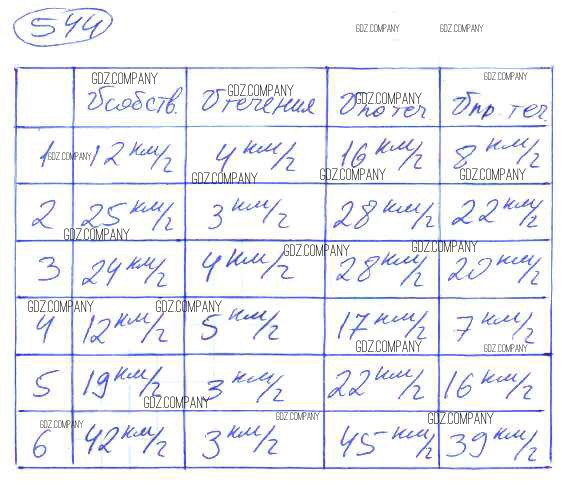 544
GDZ.COMPANY GDZ.COMPANY
GDZ.COMPANY GDZ.COMPANY GDZ.COMPANY GDZ.COMPANY
Vсобств. Vтечения Vпо теч. Vпр. теч.
1 12 км/г 4 км/г 16 км/г 8 км/г
GDZ.COMPANY GDZ.COMPANY GDZ.COMPANY GDZ.COMPANY
2 25 км/г 3 км/г 28 км/г 22 км/г
GDZ.COMPANY GDZ.COMPANY GDZ.COMPANY
3 24 км/г 4 км/г 28 км/г 20 км/г
GDZ.COMPANY GDZ.COMPANY
4 12 км/г 5 км/г 17 км/г 7 км/г
GDZ.COMPANY GDZ.COMPANY
5 19 км/г 3 км/г 22 км/г 16 км/г
GDZ.COMPANY GDZ.COMPANY GDZ.COMPANY GDZ.COMPANY
6 42 км/г 3 км/г 45 км/г 39 км/г